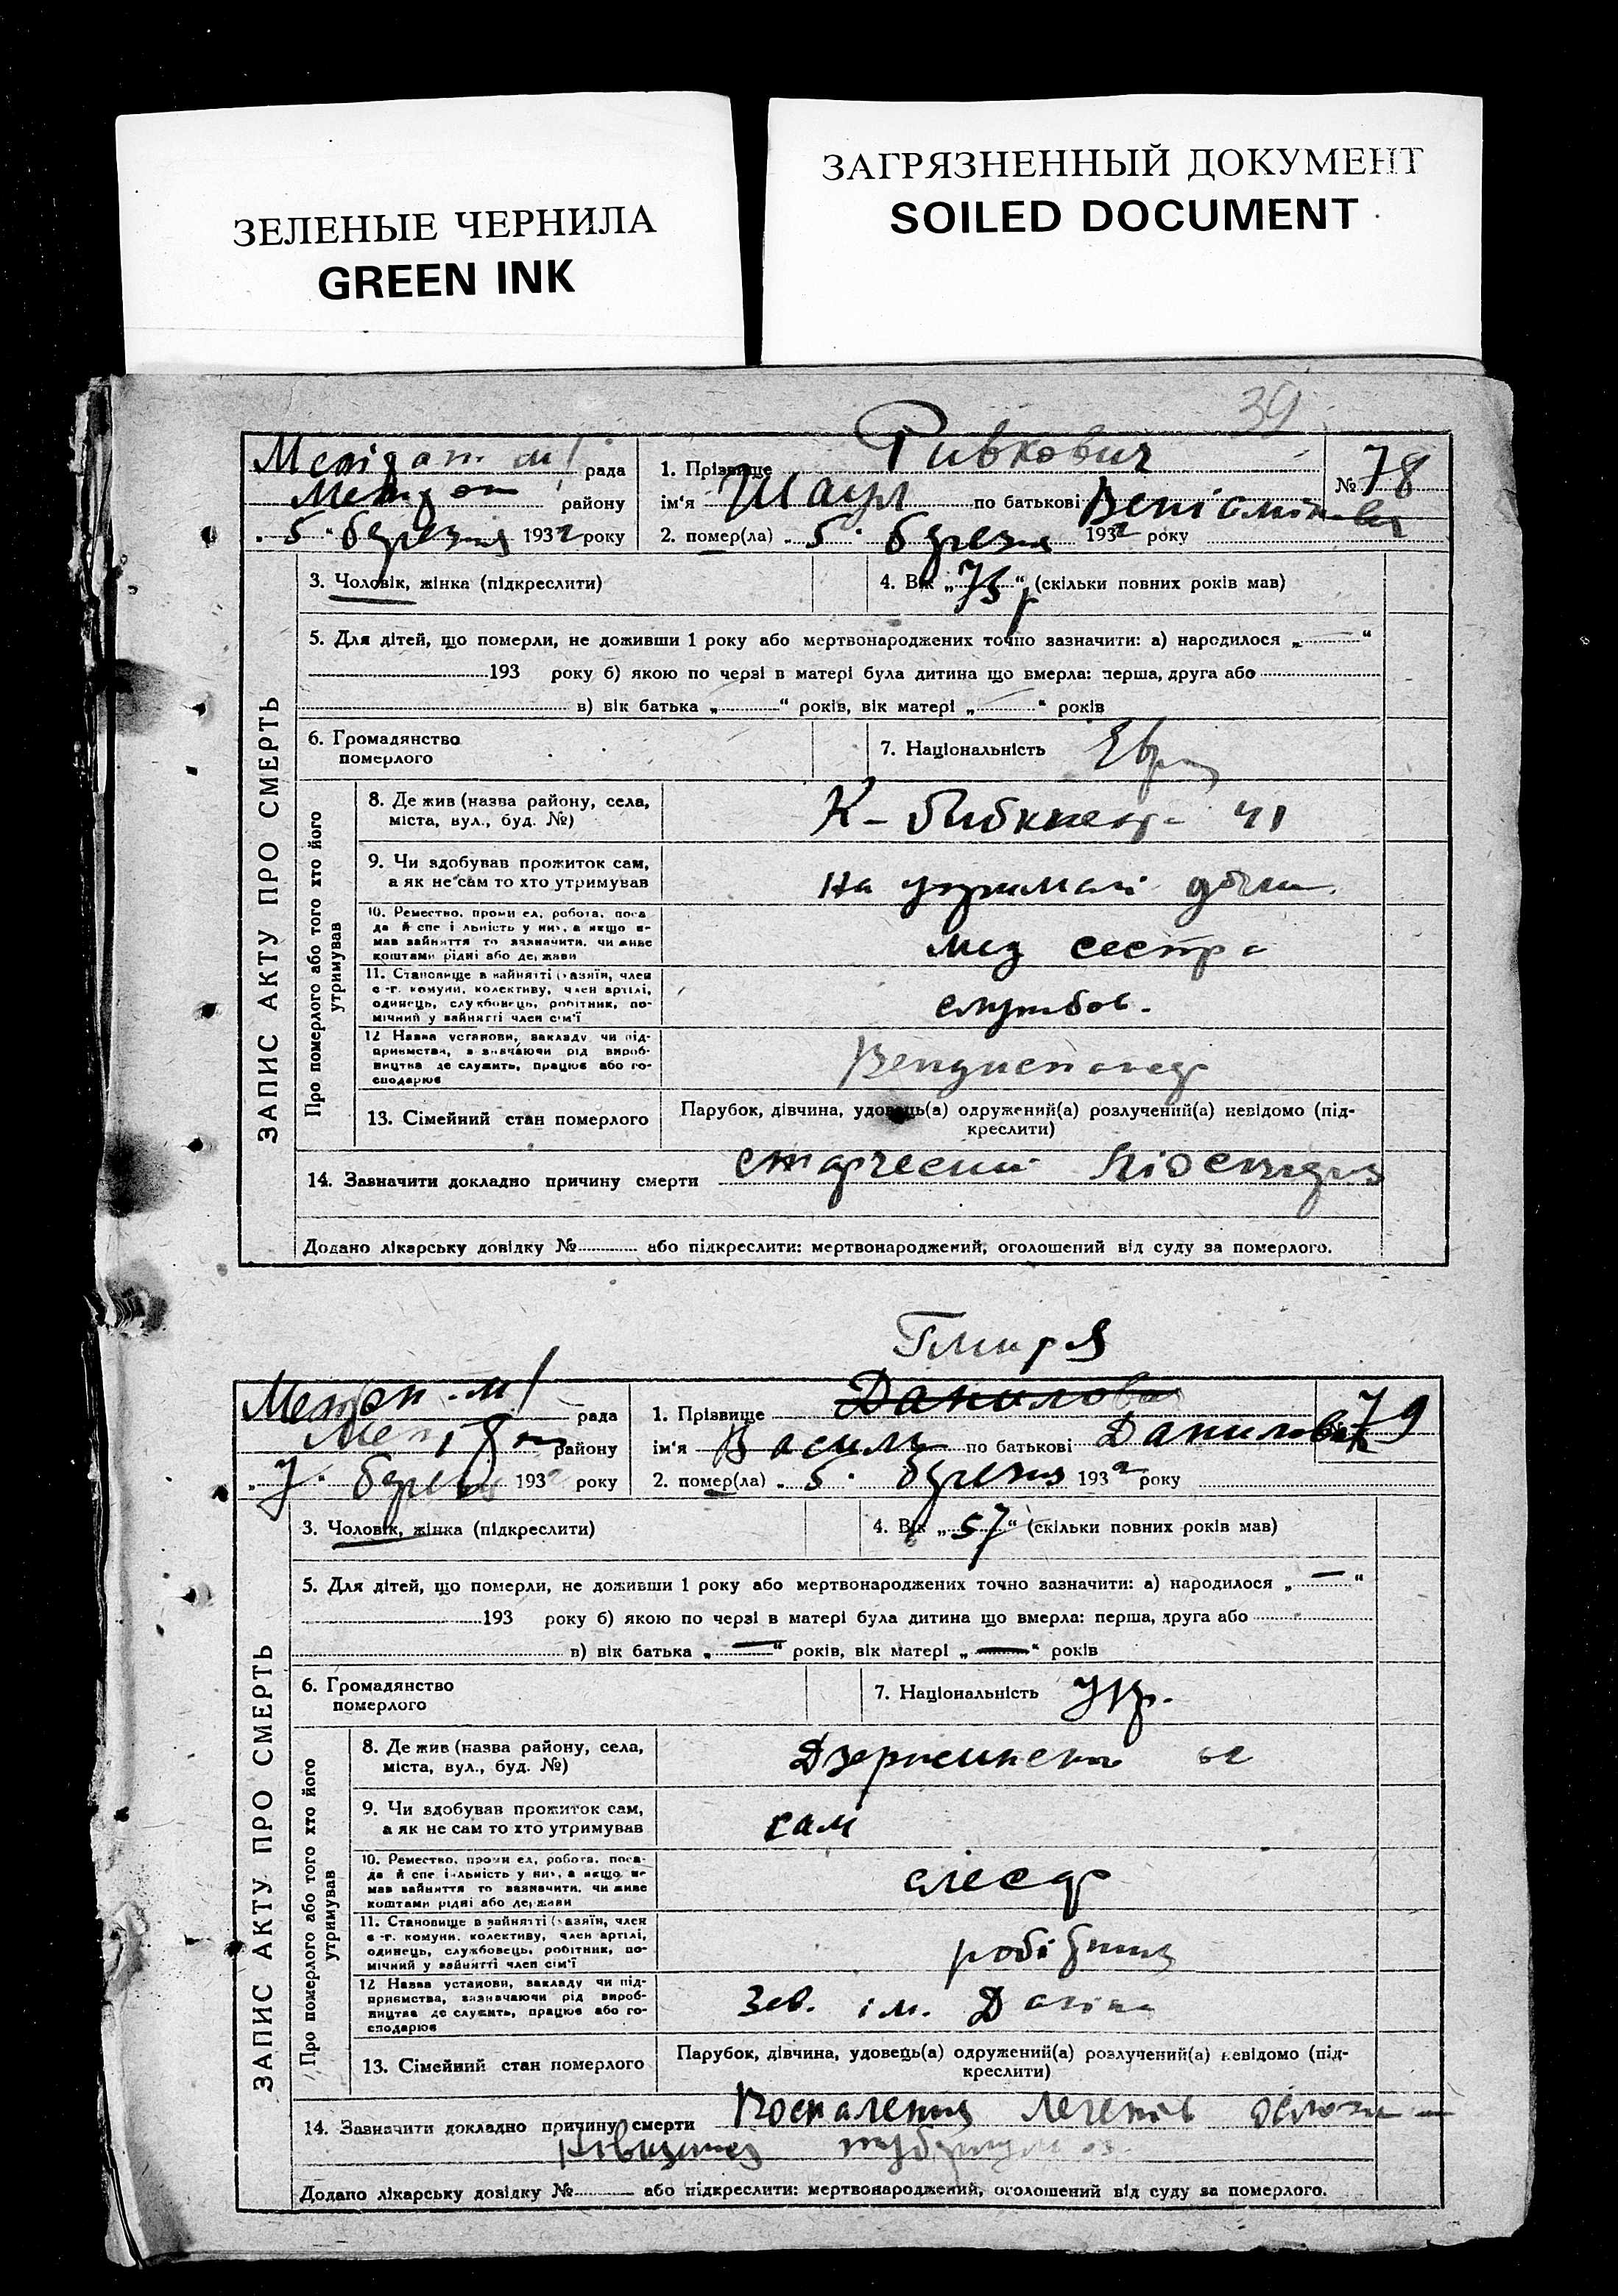 ЗЕЛЕНЫЕ ЧЕРНИЛА
GREEN INK
ЗАГРЯЗНЕННЫЙ ДОКУМЕНТ
SOILED DOCUMENT
39
рада
району
„ 5 “ березня 1932 року
1. Прізвище Ривкович
ім'я Шаул по батькові
№ 78
2. помер(ла) „ 5 “ березня 1932 року
3. Чоловік, жінка (підкреслити)
4. Вік „ 75 р “ (скільки повних років мав)
5. Для дітей, що померли, не доживши 1 року або мертвонароджених точно зазначити: а) народилося „ “
193 року б) якою по черзі в матері була дитина що вмерла: перша, друга або
в) вік батька „ “ років, вік матері „ “ років
6. Громадянство
померлого
7. Національність Евр
ЗАПИС АКТУ ПРО СМЕРТЬ
Про померлого або того хто його
утримував
8. Де жив (назва району, села,
міста, вул., буд. №)
К- 41
9. Чи здобував прожиток сам,
а як не сам то хто утримував
на утримані дочки
10. Ремество, промисел, робота, поса
да й спеціяльність у них, а якщо не
мав зайняття то зазначити, чи живе
коштами рідні або держави
мед сестра
11. Становище в зайнятті (хазяїн, член
с.-г. комуни, колективу, член артілі,
одинець, службовець, робітник, по-
мічний у зайнятті член сім'ї
службов.
12 Назва установи, закладу чи під-
приємства, зазначаючи рід вироб-
ництва де служить, працює або го-
сподарює
13. Сімейний стан померлого
Парубок, дівчина, удовець(а) одружений(а) розлучений(а) невідомо (під-
креслити)
14. Зазначити докладно причину смерти старческий
Додано лікарську довідку № або підкреслити: мертвонароджений, оголошений від суду за померлого.
рада
району
„ 7 “ березня 1932 року
1. Прізвище Данилова
ім'я Василь по батькові Данилович
79
2. помер(ла) „ 5 “ березня 1932 року
3. Чоловік, жінка (підкреслити)
4. Вік „ 57 “ (скільки повних років мав)
5. Для дітей, що померли, не доживши 1 року або мертвонароджених точно зазначити: а) народилося „ — “
193 року б) якою по черзі в матері була дитина що вмерла: перша, друга або
в) вік батька „ — “ років, вік матері „ — “ років
6. Громадянство
померлого
7. Національність Укр.
ЗАПИС АКТУ ПРО СМЕРТЬ
Про померлого або того хто його
утримував
8. Де жив (назва району, села,
міста, вул., буд. №)
Дзержинского
9. Чи здобував прожиток сам,
а як не сам то хто утримував
сам
10. Ремество, промисел, робота, поса-
да й спеціяльність у них, а якщо не
мав зайняття то зазначити, чи живе
коштами рідні або держави
слесар
11. Становище в зайнятті (хазяїн, член
с.-г. комуни, колективу, член артілі,
одинець, службовець, робітник, по-
мічний у зайнятті член сім'ї
робітник
12 Назва установи, закладу чи під-
приємства, зазначаючи рід вироб-
ництва де служить, працює або го-
сподарює
Зав. ім.
13. Сімейний стан померлого
Парубок, дівчина, удовець(а) одружений(а) розлучений(а) невідомо (під-
креслити)
14. Зазначити докладно причину смерти Воспаления легенів
Додано лікарську довідку № або підкреслити: мертвонароджений, оголошений від суду за померлого.